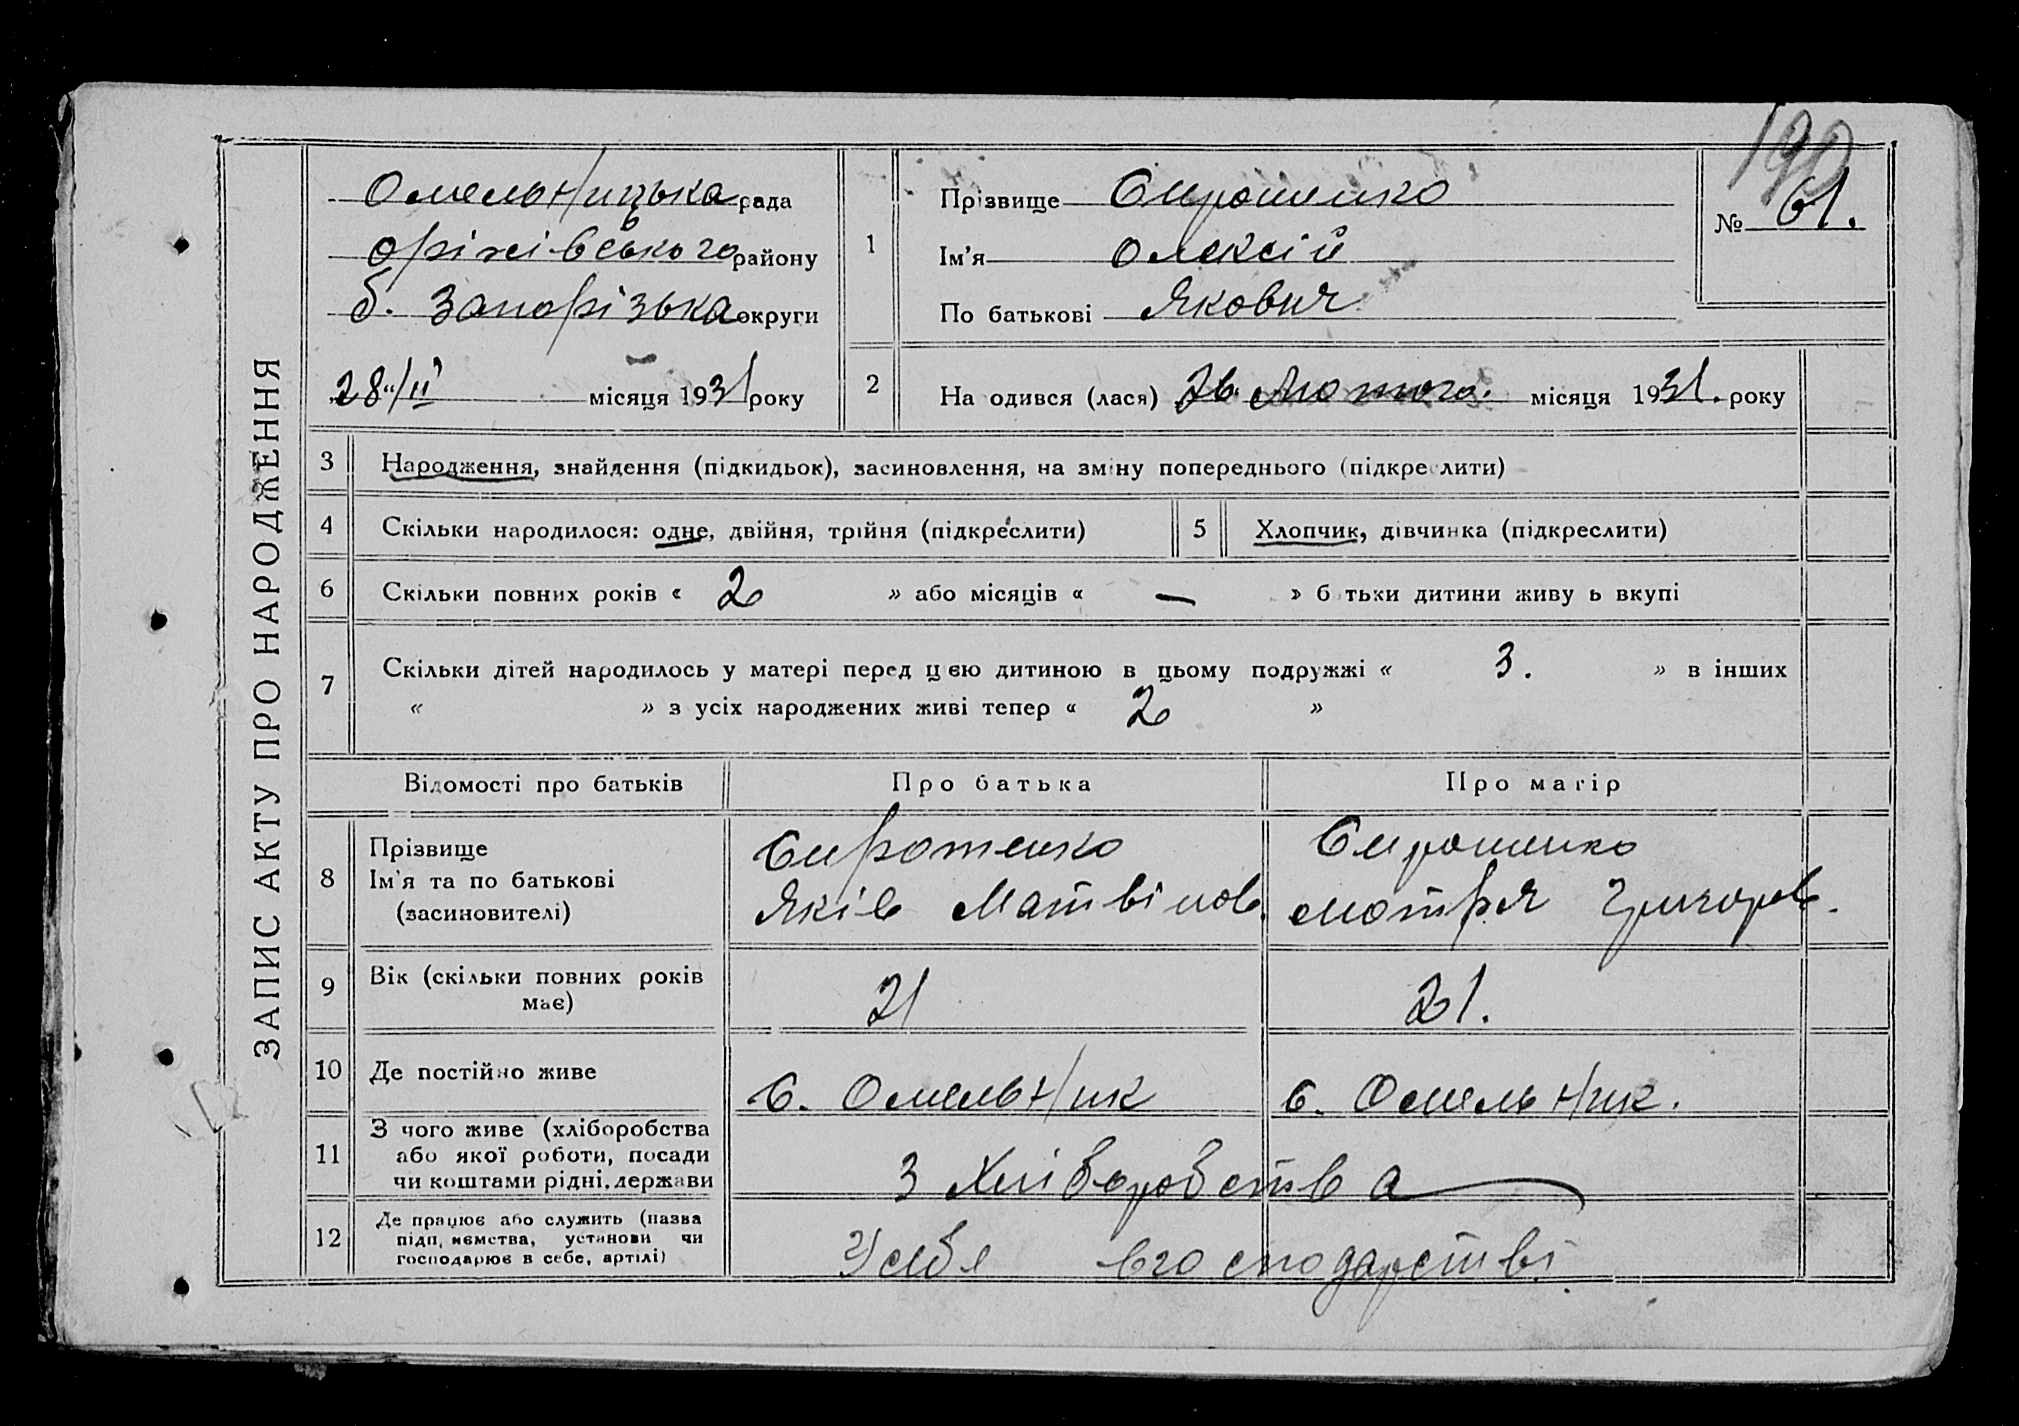 ЗАПИС АКТУ ПРО НАРОДЖЕННЯ
190
Омельницька рада
Оріхівського району
б. Запорізька округи
28/II місяця 1931 року
1 Прізвище Сиротенко
Ім'я Олексій
По батькові Якович
№ 61.
2 На одився (лася) 26 Лютого. місяця 1931. року
3 Народження, знайдення (підкидьок), засиновлення, на зміну попереднього (підкреслити)
4 Скільки народилося: одне, двійня, трійня (підкреслити) 5 Хлопчик, дівчинка (підкреслити)
6 Скільки повних років « 2 » або місяців « — » б тьки дитини живу ь вкупі
7 Скільки дітей народилось у матері перед цією дитиною в цьому подружжі « 3. » в інших
« » з усіх народжених живі тепер « 2 »
Відомості про батьків Про батька Про матір
8 Прізвище
Ім'я та по батькові
(засиновителі)
Сиротенко
Яків Матвійов.
Сиротенко
Мотря Григоров.
9 Вік (скільки повних років
має)
21 21.
10 Де постійно живе с. Омельник с. Омельник.
11 З чого живе (хліборобства
або якої роботи, посади
чи коштами рідні, держави
З Хліборобства
12 Де працює або служить (назва
підп, иємства, установи чи
господарює в себе, артілі)
У себя в господарстві